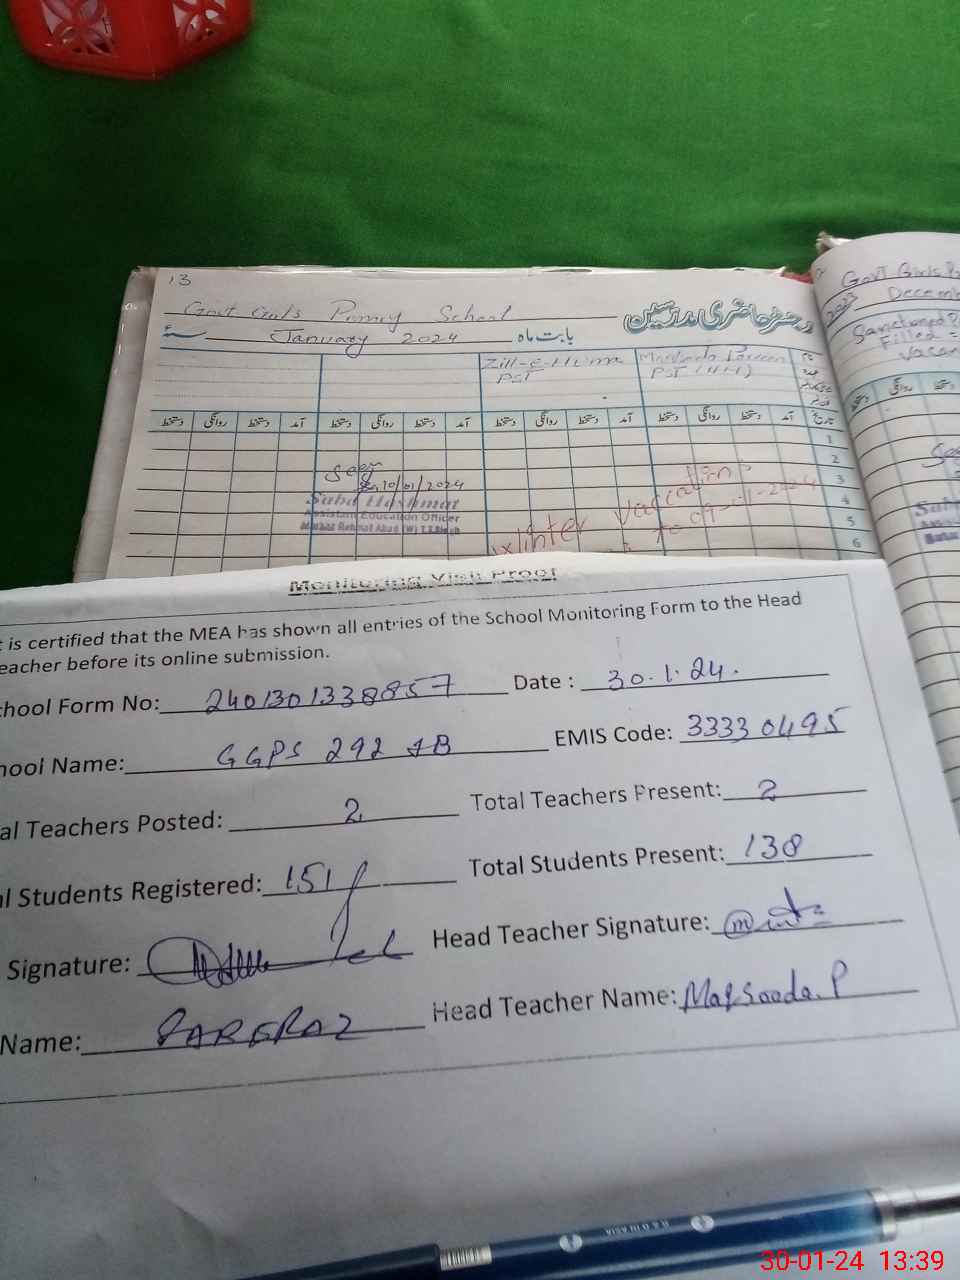 13
Govt Girls Primary School
دفتر حاضری مدرسین
بابت ماہ January 2024 سنۂ
Zill-e-Huma
PST
Maqsooda Parveen
PST (HH)
دستخط روانگی دستخط آمد دستخط روانگی دستخط آمد دستخط روانگی دستخط آمد دستخط روانگی دستخط آمد تاریخ
1
2
3
4
5
6
Seen
10/01/2024
Saba Hashmat
Assistant Education Officer
Winter Vaccations
to 09-01-2024
Govt Girls P
2023 Decemb
Sanctioned P
Filled =
Vacan
روانگی دستخط
Monitoring Visit Proof
t is certified that the MEA has shown all entries of the School Monitoring Form to the Head
eacher before its online submission.
chool Form No: 2401301338857 Date : 30.1.24.
hool Name: GGPS 292 JB EMIS Code: 33330495
al Teachers Posted: 2 Total Teachers Present: 2
al Students Registered: 151 Total Students Present: 138
Signature: Head Teacher Signature:
Name: SARFRAZ Head Teacher Name: Maqsooda.P
30-01-24 13:39